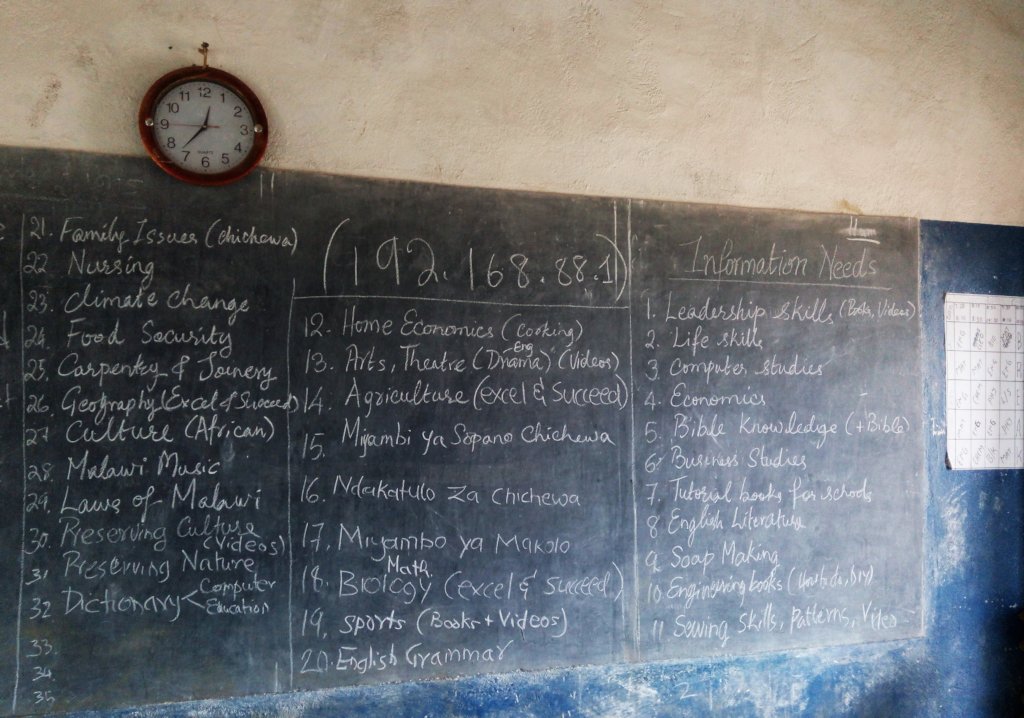 12
1
2
3
4
5
6
7
8
9
10
11
21. Family Issues (Chichewa)
22 Nursing
23. Climate change
24. Food Security
25. Carpentry & Joinery
26. Geography (Excel & Succeed)
27 Culture (African)
28. Malawi Music
29. Laws of Malawi
30. Preserving Culture
(Videos)
31 Preserving Nature
32 Dictionary < Computer
Education
33.
34.
35.
(192.168.88.1)
12. Home Economics (Cooking)
Eng
13. Arts, Theatre (Drama) (Videos)
14. Agriculture (excel & Succeed)
15. Miyambi ya Sopano Chichewa
16. Ndakatulo Za Chichewa
17. Miyambo ya Makolo
Math
18. Biology (excel & succeed)
19. sports (Books + Videos)
20. English Grammar
Information Needs
1. Leadership skills (Books, Videos)
2. Life skills
3 Computer studies
4. Economics
5. Bible Knowledge (+Bible)
6. Business Studies
7. Tutorial books for schools
8 English Literature
9. Soap Making
10. Engineering books (How to do, DIY)
11. Sewing Skills, Patterns, Video